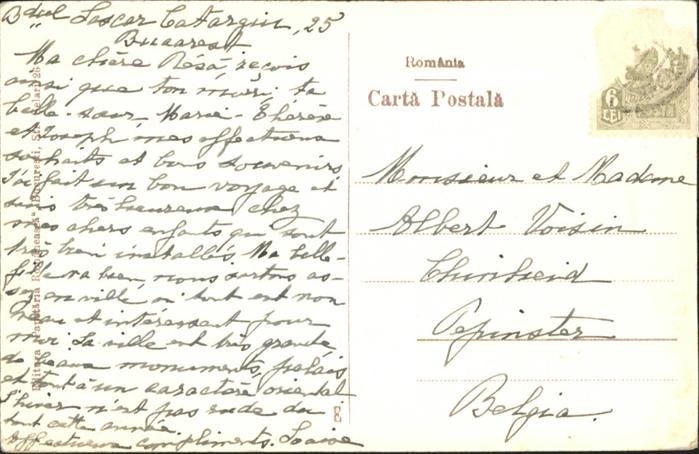 Bdul Lascar Catargiu, 25
Bucarest
Ma chère Résá, reçois
ainsi que ton mari, ta
belle-sœur Marie-Thérèse
et Joseph mes affectueux
souhaits et bons souvenirs
J'ai fait un bon voyage et
suis très heureuse chez
mes chers enfants qui sont
très bien installés. Ma belle-
fille va bien, nous sortons as-
sez en ville où tout est nou
veau et intéressant pour
moi. La ville est très grande
de beaux monuments, palais
et tout à un caractère oriental
L'hiver n'est pas rude du
tout cette année.
Affectueux compliments. Louise
România
Cartă Postală
6
LEI
Monsieur et Madame
Albert Voisin
Pepinster
Belgia.
Editura Papităria Românească Bucureşti,
E